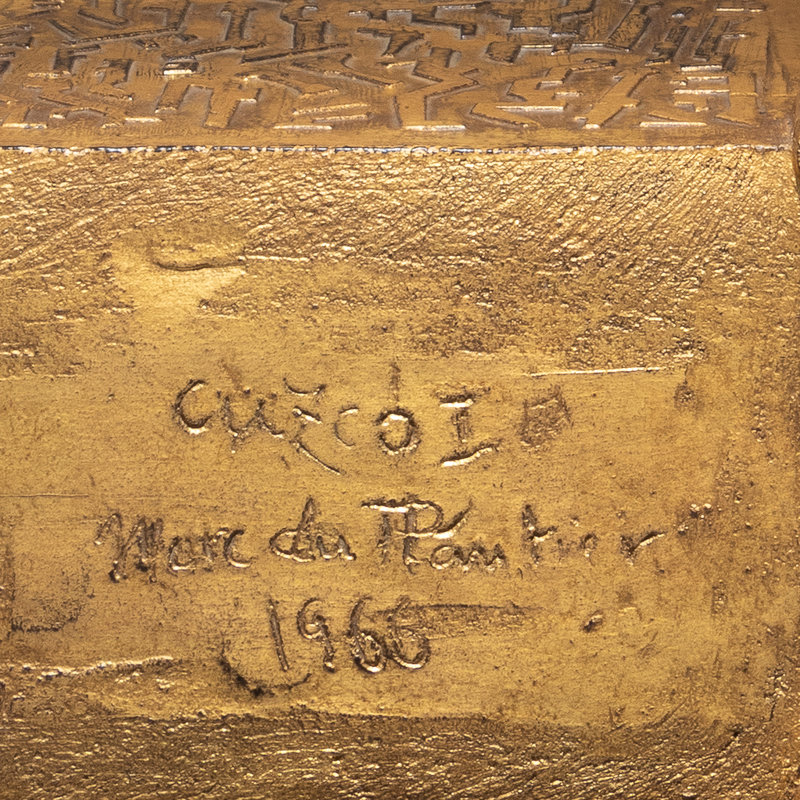 CUZCO I
Marc du Plantier
1966